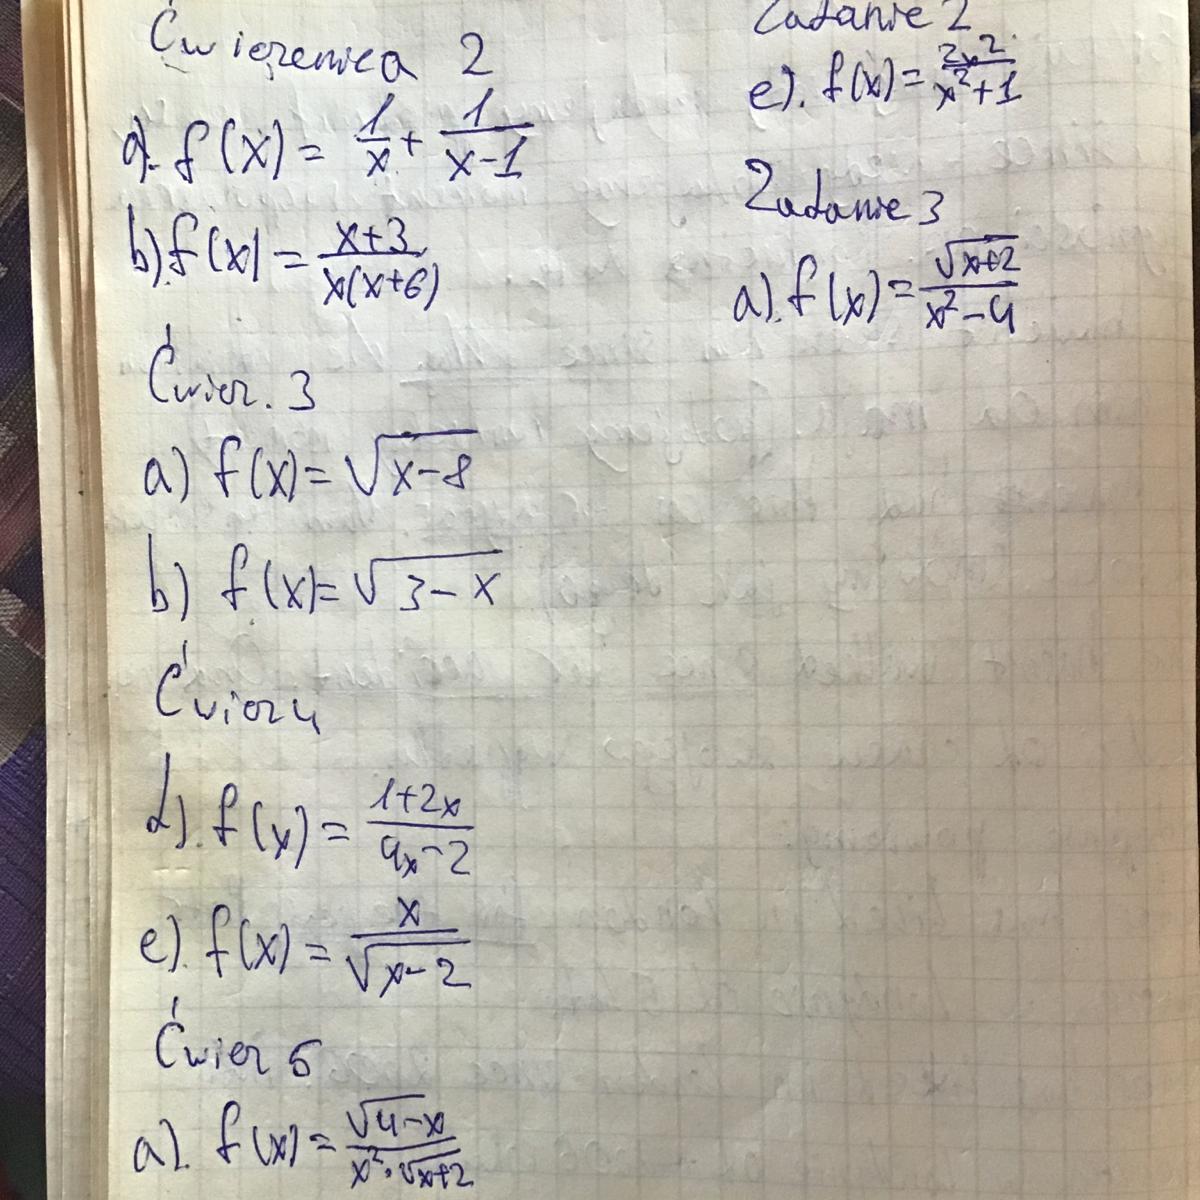 Ćwiczenica 2
a). f(x) = 1/x + 1/(x-1)
b) f(x) = (x+3)/(x(x+6))
Ćwicz. 3
a) f(x) = √(x-8)
b) f(x) = √(3-x)
Ćwicz 4
d). f(x) = (1+2x)/(4x-2)
e). f(x) = x/√(x-2)
Ćwicz 5
a). f(x) = √(4-x)/(x²·√(x+2))
Zadanie 2
e). f(x) = 2x²/(x²+1)
Zadanie 3
a). f(x) = √(x+2)/(x²-4)